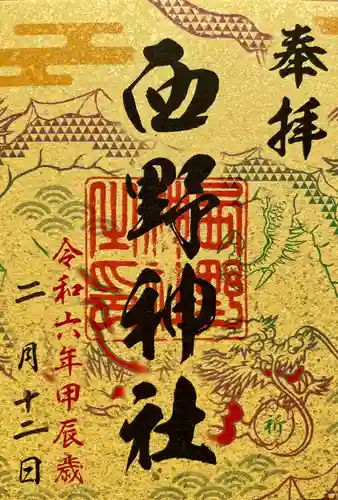 奉拝
西野神社
令和六年甲辰歳
二月十二日
祈